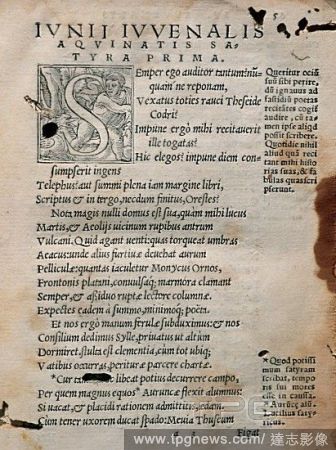 IVNIJ IVVENALIS
AQVINATIS SA-
TYRA PRIMA.
SEmper ego auditor tantum: nũ-
quam ne reponam,
Vexatus toties rauci Theseide
Codri?
Impune ergo mihi recitauerit
ille togatas?
Hic elegos? impune diem con-
sumpserit ingens
Telephus? aut summi plena iam margine libri,
Scriptus & in tergo, necdum finitus, Orestes?
Nota magis nulli domus est sua, quàm mihi lucus
Martis, & Aeolijs uicinum rupibus antrum
Vulcani. Quid agant uenti: quas torqueat umbras
Aeacus: unde alius furtiuæ deuehat aurum
Pelliculæ: quantas iaculetur Monycus Ornos,
Frontonis platani, conuulsaq; marmora clamant
Semper, & assiduo ruptæ lectore columnæ.
Expectes eadem à summo, minimoq; poëta.
Et nos ergò manum ferulæ subduximus: & nos
Consilium dedimus Syllæ, priuatus ut altùm
Dormiret. stulta est clementia, cùm tot ubiq;
Vatibus occurras, perituræ parcere chartæ.
*Cur libeat potius decurrere campo,
Per quem magnus equos *Auruncæ flexit alumnus:
Si uacat, & placidi rationem admittitis, edam.
Cùm tener uxorem ducat spado: Meuia Thuscum
Figat
Queritur ociũ
sibi perire, dũ
ignauus ad
fastidiũ poëtas
recitates cogit̃
audire, cũ ta-
men ipse aliqd
possit scribere.
Quotidie nihil
aliud quã reci
tant mihi histo
rias suas, &
fabulas quas scri
pserunt.
*Quod potissi
mum satyram
scribat, tempo
ris sui mores
esse in causa.
*Auruncæ alũ.
Lucilius saty-
ricus.
www.tpgnews.com/ 達志影像